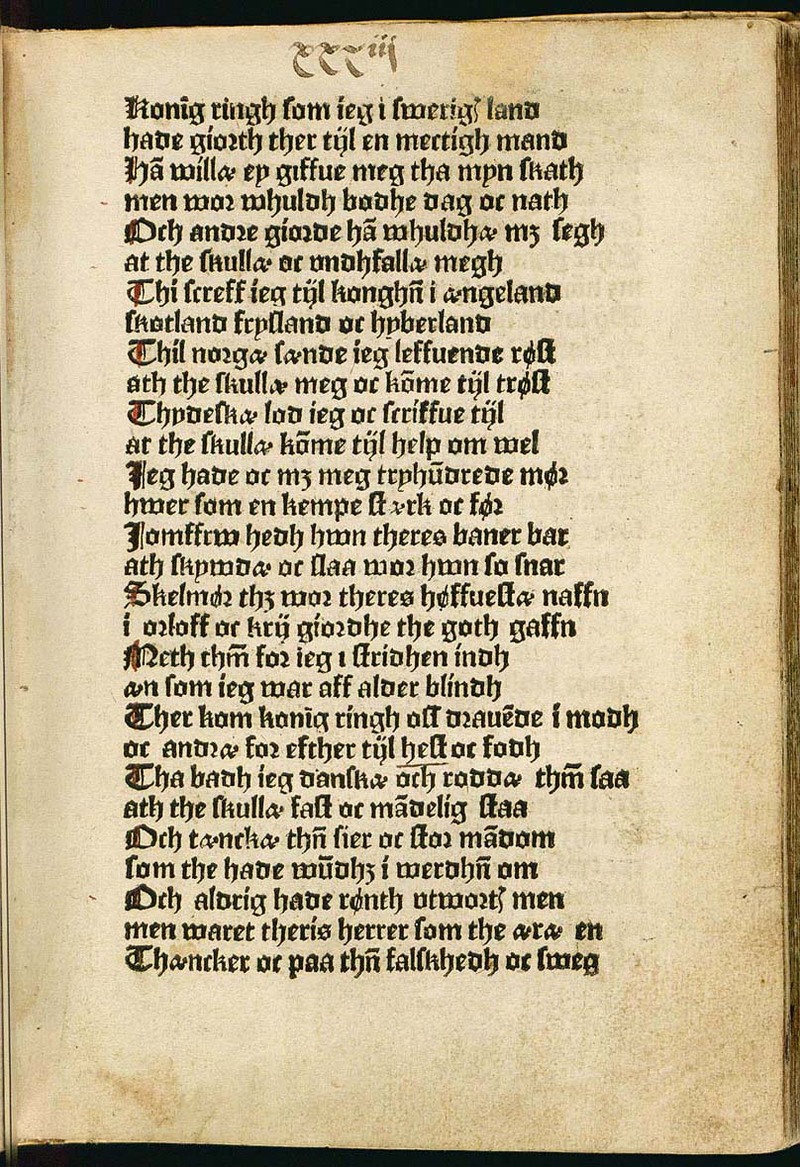 xxxiij
Konīg ringh som ieg i swerigſ land
hade giorth ther tijl en mectigh mand
Hā willæ ey giffue meg tha myn skath
men wor whuldh bodhe dag oc nath
Och andre giorde hā whuldhæ mꝫ segh
at the skullæ oc vndhfallæ megh
Thi screff ieg tijl konghn̄ i ængeland
skotland frysland oc hyberland
Thil norgæ sænde ieg leffuende røst
ath the skullæ meg oc kōme tijl trøst
Thydeskæ lod ieg oc scriffue tijl
at the skullæ kōme tijl help om wel
Jeg hade oc mꝫ meg tryhūdrede mør
hwer som en kempe stærk oc før
Jomffrw hedh hwn theres baner bar
ath skywdæ oc slaa wor hwn so snar
Skelmør thꝫ wor theres høffuestæ naffn
i orloff oc krij giordhe the goth gaffn
Meth thm̄ for ieg i stridhen indh
æn som ieg war aff alder blindh
Ther kom konīg ringh ost drauēde i modh
oc andræ for efther tijl hest oc fodh
Tha badh ieg danskæ och roddæ thm̄ saa
ath the skullæ fast oc mādelig staa
Och tænckæ thn̄ sier oc stor mādom
som the hade wūdhꝫ i werdhn̄ om
Och aldrig hade rønth vtwortſ men
men waret theris herrer som the æræ en
Thæncker oc paa thn̄ falskhedh oc sweg